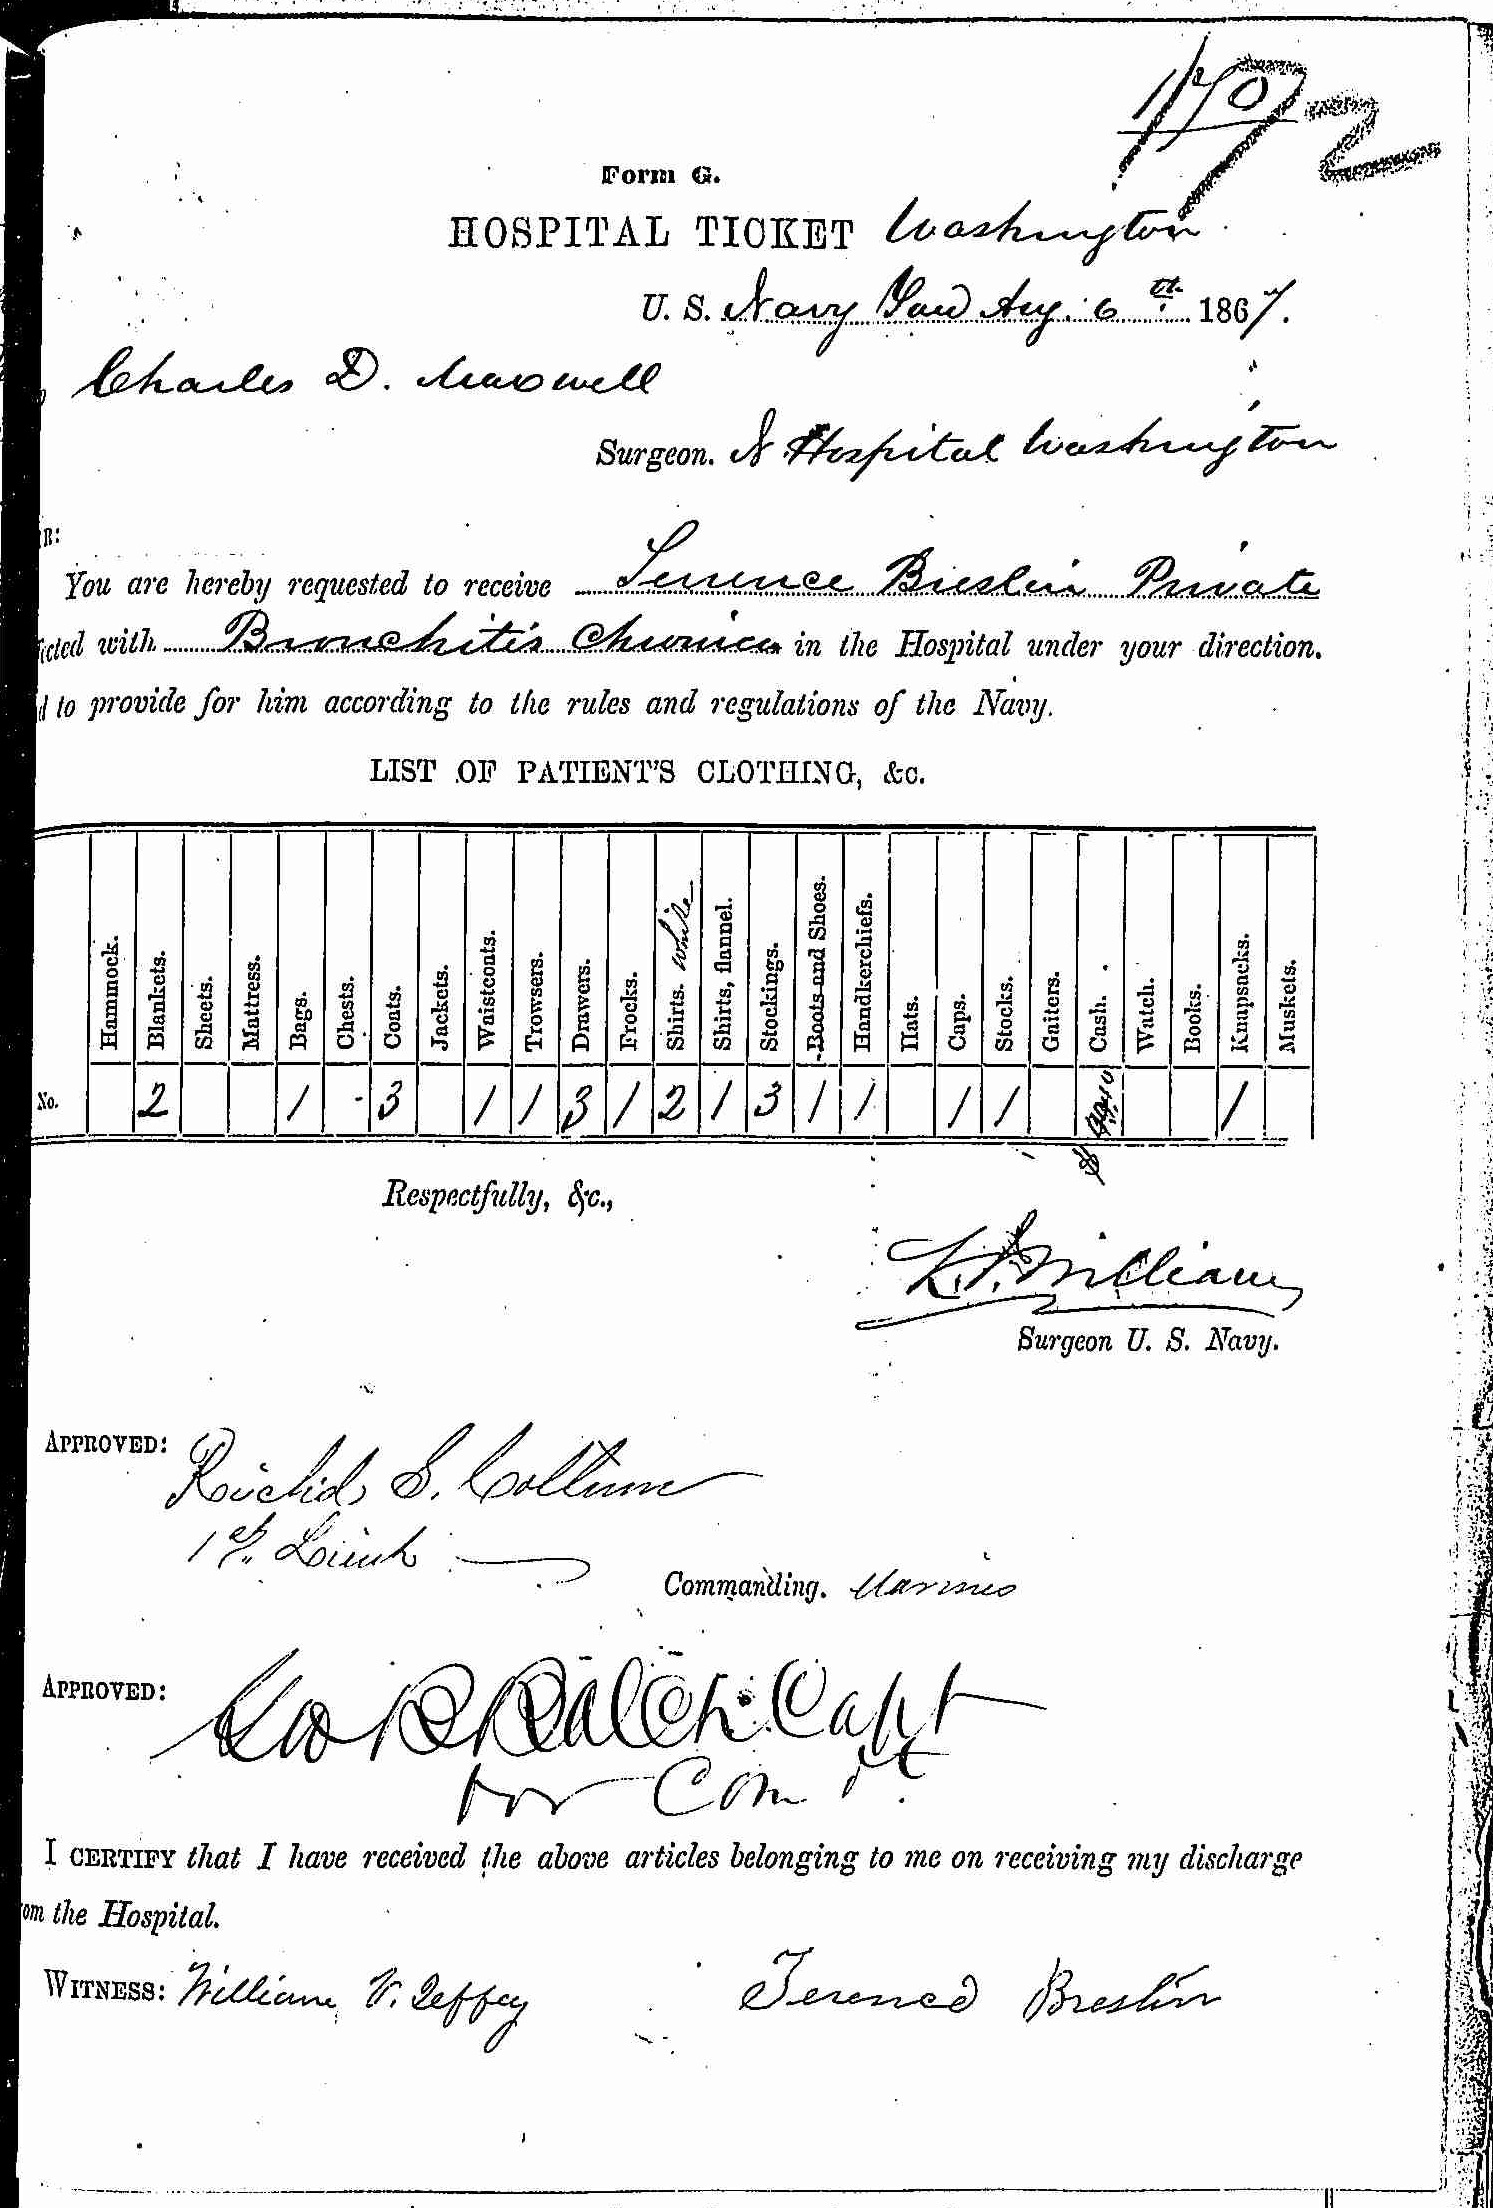 172
Form G.
HOSPITAL TICKET Washington
U. S. Navy Yard Aug. 6th 1867.
Charles D. Maxwell
Surgeon. N Hospital Washington
You are hereby requested to receive Terrence Breslin Private
with Bronchitis Chronica in the Hospital under your direction.
to provide for him according to the rules and regulations of the Navy.
LIST OF PATIENT'S CLOTHING, &c.
Hammock. Blankets. Sheets. Mattress. Bags. Chests. Coats. Jackets. Waistcoats. Trowsers. Drawers. Frocks. Shirts. White Shirts, flannel. Stockings. Boots and Shoes. Handkerchiefs. Hats. Caps. Stocks. Gaiters. Cash. Watch. Books. Knapsacks. Muskets.
No. 2 1 3 1 1 3 1 2 1 3 1 1 1 1 $ 1
Respectfully, &c.,
Surgeon U. S. Navy.
APPROVED: Richd S. Collum
1st Lieut
Commanding. Marines
APPROVED: Geo B Balch Capt
for Comdt.
I CERTIFY that I have received the above articles belonging to me on receiving my discharge
the Hospital.
WITNESS: William V. Terence Breslin